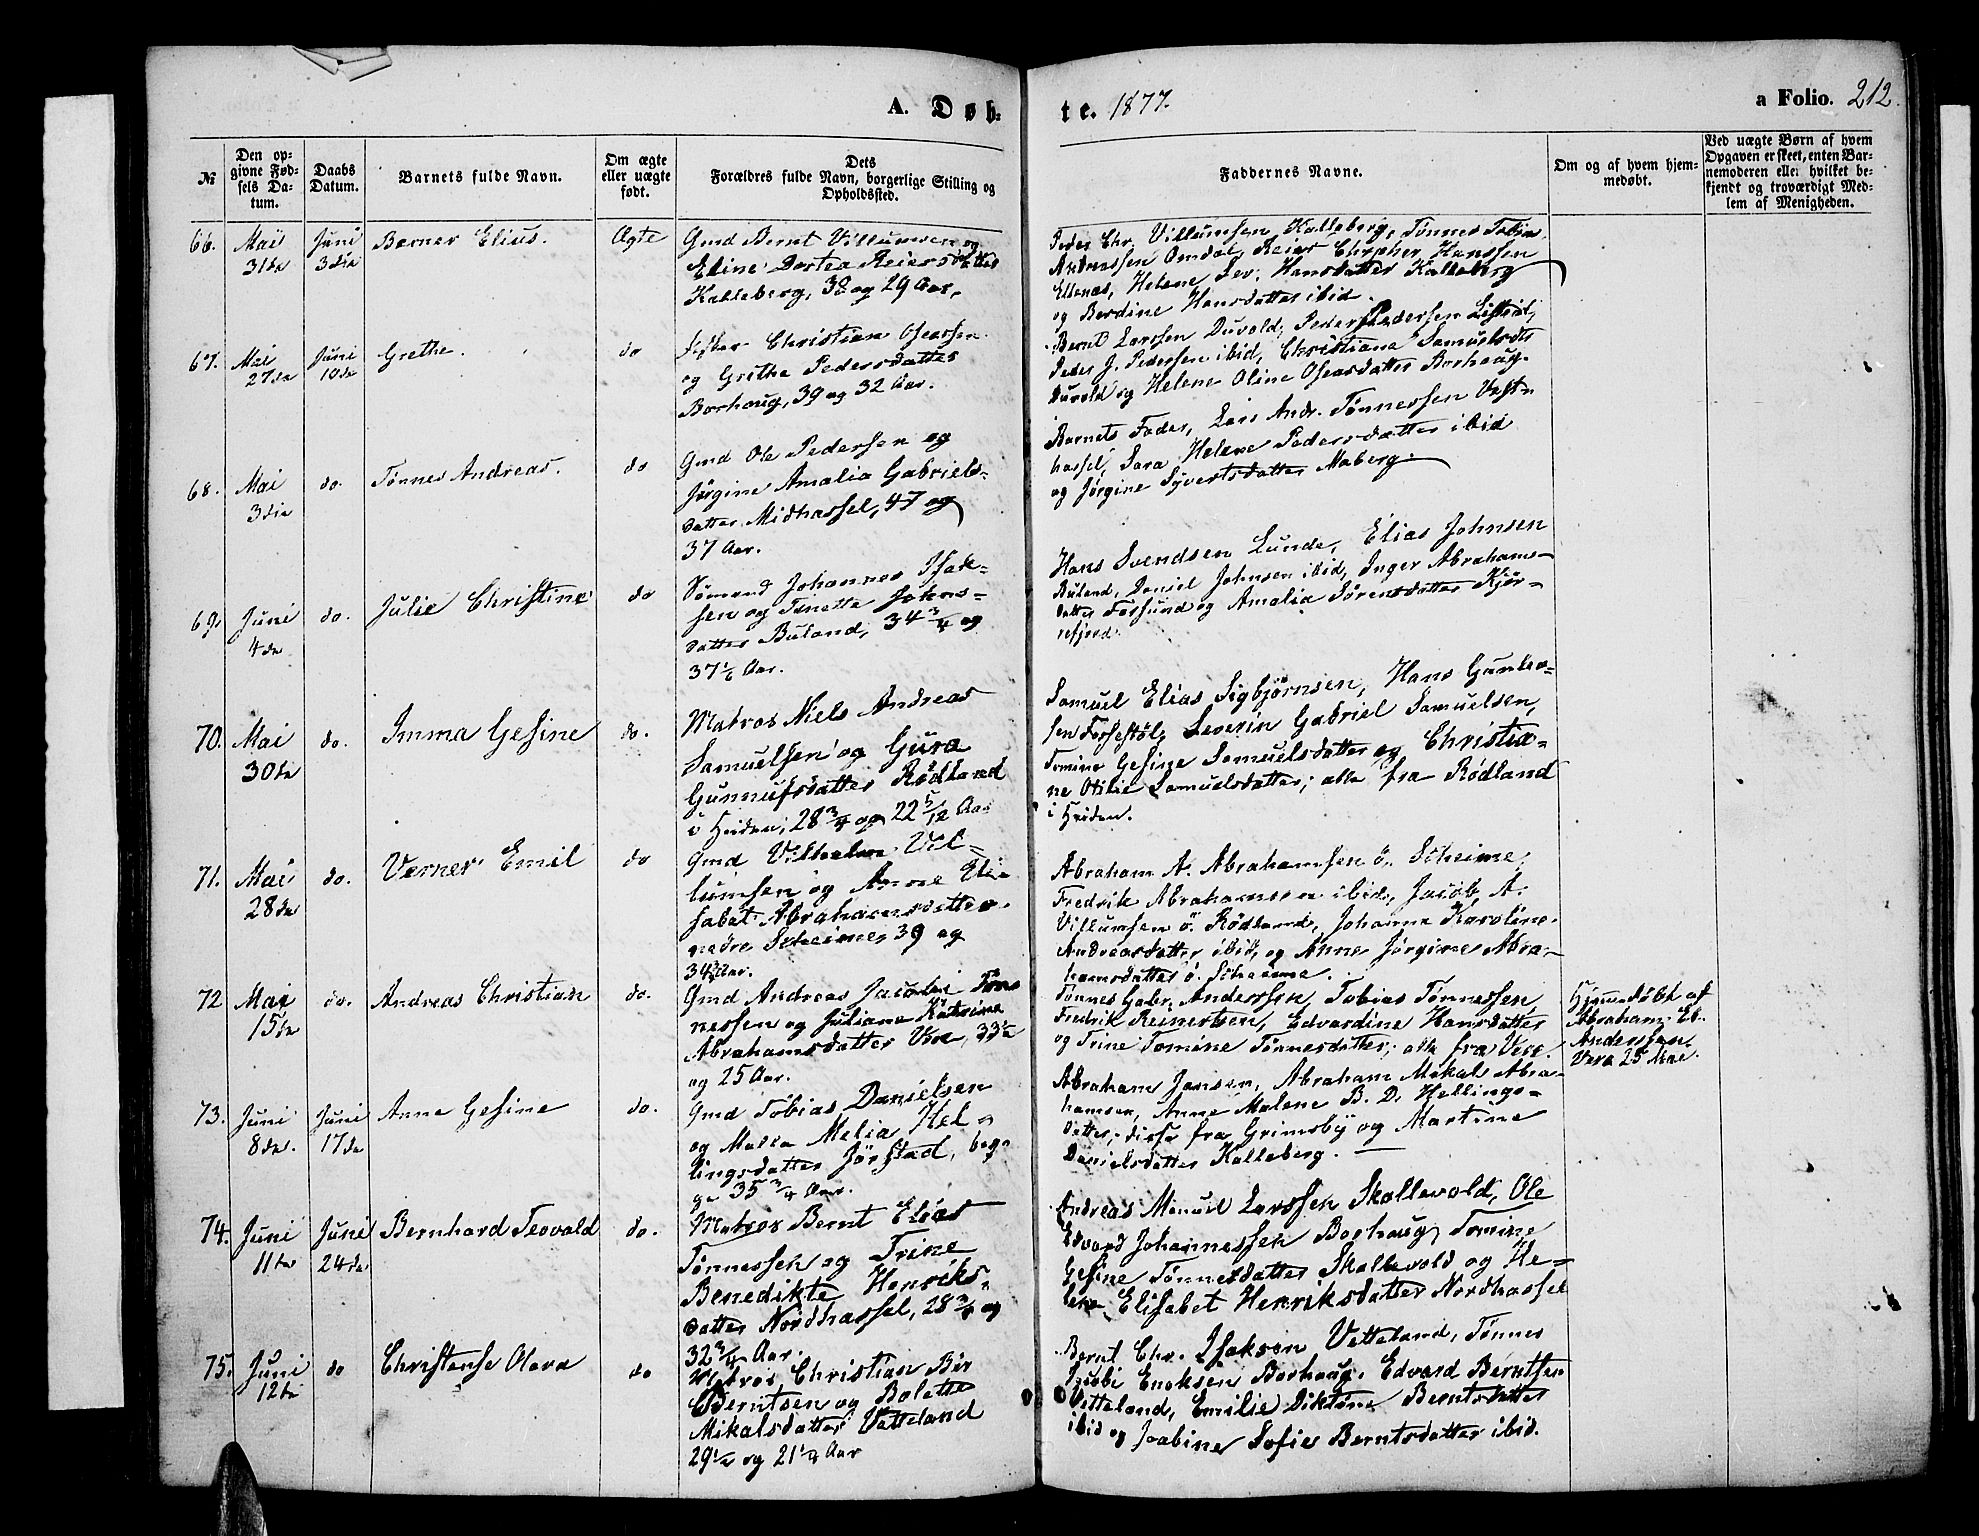 A. Døb-
te. 1877.
a Folio. 212.
№
Den op-
givne Fød-
sels Da-
tum.
Daabs
Datum.
Barnets fulde Navn.
Om ægte
eller uægte
født.
Dets
Forældres fulde Navn, borgerlige Stilling og
Opholdssted.
Faddernes Navne.
Om og af hvem hjem-
medøbt.
Ved uægte Børn af hvem
Opgaven er skeet, enten Bar-
nemoderen eller hvilket be-
kjendt og troværdigt Med-
lem af Menigheden.
66.
Mai
31te
Juni
3die
Berner Elius.
Ægte
Gmd Bernt Villumsen og
Eline Dortea Reiersdatter
Kalleberg, 38 og 29 Aar.
Peder Chr. Villumsen Kalleberg, Tønnes Tobias
Andreassen Omdal, Reier Chrpher Hanssen
Ellenes, Helene Sev. Hansdatter Kalleberg
og Berdine Hansdatter ibid.
67.
Mai
27de
Juni
10de
Grethe.
do
Fisker Christian Oseassen
og Grethe Pedersdatter
Borhoug, 39 og 32 Aar.
Bernt Larssen Duvold, Peder Pedersen
Peder J. Pedersen ibid, Christiane Samuelsdtr
Duvold og Helene Oline Oseasdatter Borhoug.
68.
Mai
3die
do.
Tønnes Andreas.
do
Gmd Ole Pedersen og
Jørgine Amalia Gabriels-
datter Midhassel, 47 og
37 Aar.
Barnets Fader, Lars Andr. Tønnessen Vest-
hassel, Sara Helene Pedersdatter ibid
og Jørgine Syvertsdatter Maberg.
69.
Juni
4de
do.
Julie Christine
do
Sømand Johannes Isak-
sen og Tenette Johns-
datter Buland, 34 3/4 og
37 1/6 Aar.
Hans Svendsen Lunde, Elias Johnsen
Büland, Daniel Johnsen ibid, Inger Abrahams-
datter Farsund og Amalia Sørensdatter Kjør-
refjord.
70.
Mai
30te
do.
Imma Gesine
do.
Matros Niels Andreas
Samuelsen og Gura
Gunnufsdatter Rødland
i Heiden, 28 3/4 og 22 5/12 Aar
Samuel Elias Sigbjørnsen, Hans Gunles-
sen Førsestøl, Severin Gabriel Samuelsen,
Tomine Gesine Samuelsdatter og Christia-
ne Otilie Samuelsdatter, alle fra Rødland
i Heiden.
71.
Mai
28de
do.
Verner Emil
do
Gmd Vilhelm Vil-
lumsen og Anne Eli-
sabet Abrahamsdatter
nedre Scheime, 39 og
34 3/4 Aar.
Abraham A. Abrahamsen ö. Scheime,
Fredrik Abrahamsen ibid, Jacob A.
Villumsen ö. Rødland, Johanne Karoline
Andreasdatter ibid, og Anne Jørgine Abra-
hamsdatter ö. Scheime.
72
Mai
15te
do.
Andreas Christian
do.
Gmd Andreas Jacobi Tøn-
nessen og Juliane Katrine
Abrahamsdatter Vere, 33 1/2
og 25 Aar.
Tønnes Gabr. Anderssen, Tobias Tønnessen,
Fredrik Reinertsen, Edvardine Hansdatter
og Trine Tomine Tønnesdatter, alle fra Vere.
Hjemmedøbt af
Abraham El.
Anderssen
Vere 25 Mai.
73.
Juni
8de.
Juni
17de
Anne Gesine
do.
Gmd Tobias Danielsen
og Malla Melia Hel-
lingsdatter Jørstad, beg-
ge 35 3/4 Aar.
Abraham Jansen, Abraham Mikals Abra-
hamsen, Anne Malene B. D. Hellings-
datter, disse fra Grimsby og Martine
Danielsdatter Kalleberg.
74.
Juni
11te
Juni
24de
Bernhard Teovald
do.
Matros Bernt Elias
Tønnessen og Trine
Benedikte Henriks-
datter Nordhassel, 28 3/4 og
32 3/4 Aar.
Andreas Manuel Larssen Skollevold, Ole
Edvard Johannessen Borhaug, Tomine
Gesine Tønnesdatter Skollevold og He-
lene Elisabet Henriksdatter Nordhassel
75.
Juni
12te
do
Christense Olava
do
Matros Christian Bér
Berntsen og Bolette
Mikalsdatter Vatteland
29 1/2 og 21 1/4 Aar
Bernt Chr. Isaksen Vetteland, Tønnes
Jacobi Enoksen Borhaug, Edvard Berntsen
Vetteland, Emilie Diktine Berntsdatter
ibid og Joabine Sofie Berntsdatter ibid.